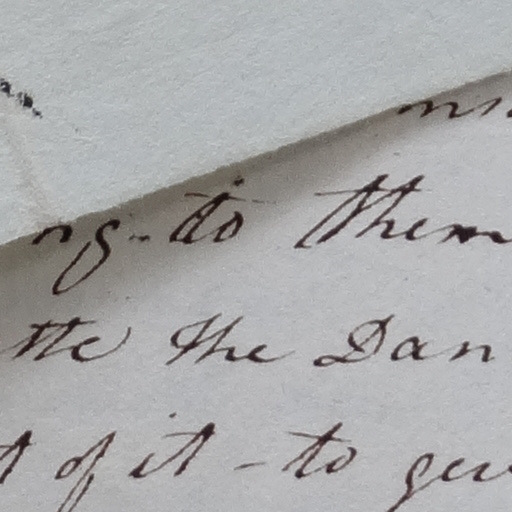 ng - to them
tte the Dan
t of it - to